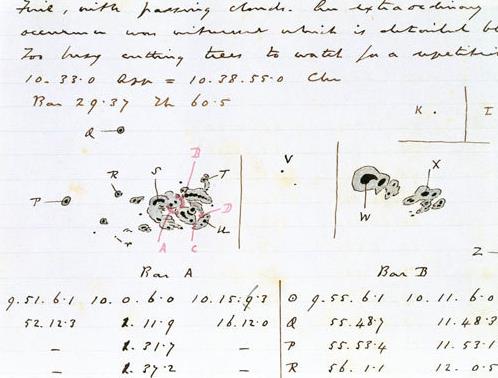 Fine, with passing clouds. An extraordinary
occurrence was witnessed which is detailed be
Too busy cutting trees to watch for a repetiti
10.33.0 App = 10.38.55.0 Chr
Bar 29.37 Th 60.5
K
I
Q
B
V
X
P
R
S
T
D
U
A
C
W
Z
Bar A
Bar B
9.51.6.1 10.0.6.0 10.15.9.3 ⊙ 9.55.6.1 10.11.6.0
52.12.3 2.11.9 16.12.0 Q 55.48.7 11.48.3
– 2.31.7 – P 55.53.4 11.53.1
– 2.37.2 – R 56.1.1 12.0.5